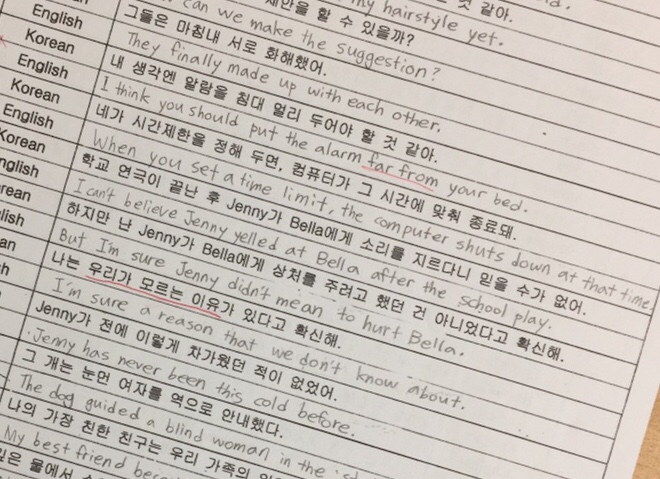 my hairstyle yet.
제안을 할 수 있을까?
can we make the suggestion?
Korean 그들은 마침내 서로 화해했어.
English They finally made up with each other.
Korean 내 생각엔 알람을 침대 멀리 두어야 할 것 같아.
English I think you should put the alarm far from your bed.
Korean 네가 시간제한을 정해 두면, 컴퓨터가 그 시간에 맞춰 종료돼.
English When you set a time limit, the computer shuts down at that time.
Korean 학교 연극이 끝난 후 Jenny가 Bella에게 소리를 지르다니 믿을 수가 없어.
I can't believe Jenny yelled at Bella after the school play.
하지만 난 Jenny가 Bella에게 상처를 주려고 했던 건 아니었다고 확신해.
But I'm sure Jenny didn't mean to hurt Bella.
나는 우리가 모르는 이유가 있다고 확신해.
I'm sure a reason that we don't know about.
Jenny가 전에 이렇게 차가웠던 적이 없었어.
Jenny has never been this cold before.
그 개는 눈먼 여자를 역으로 안내했다.
The dog guided a blind woman in the
나의 가장 친한 친구는 우리 가족의
My best friend
물에서